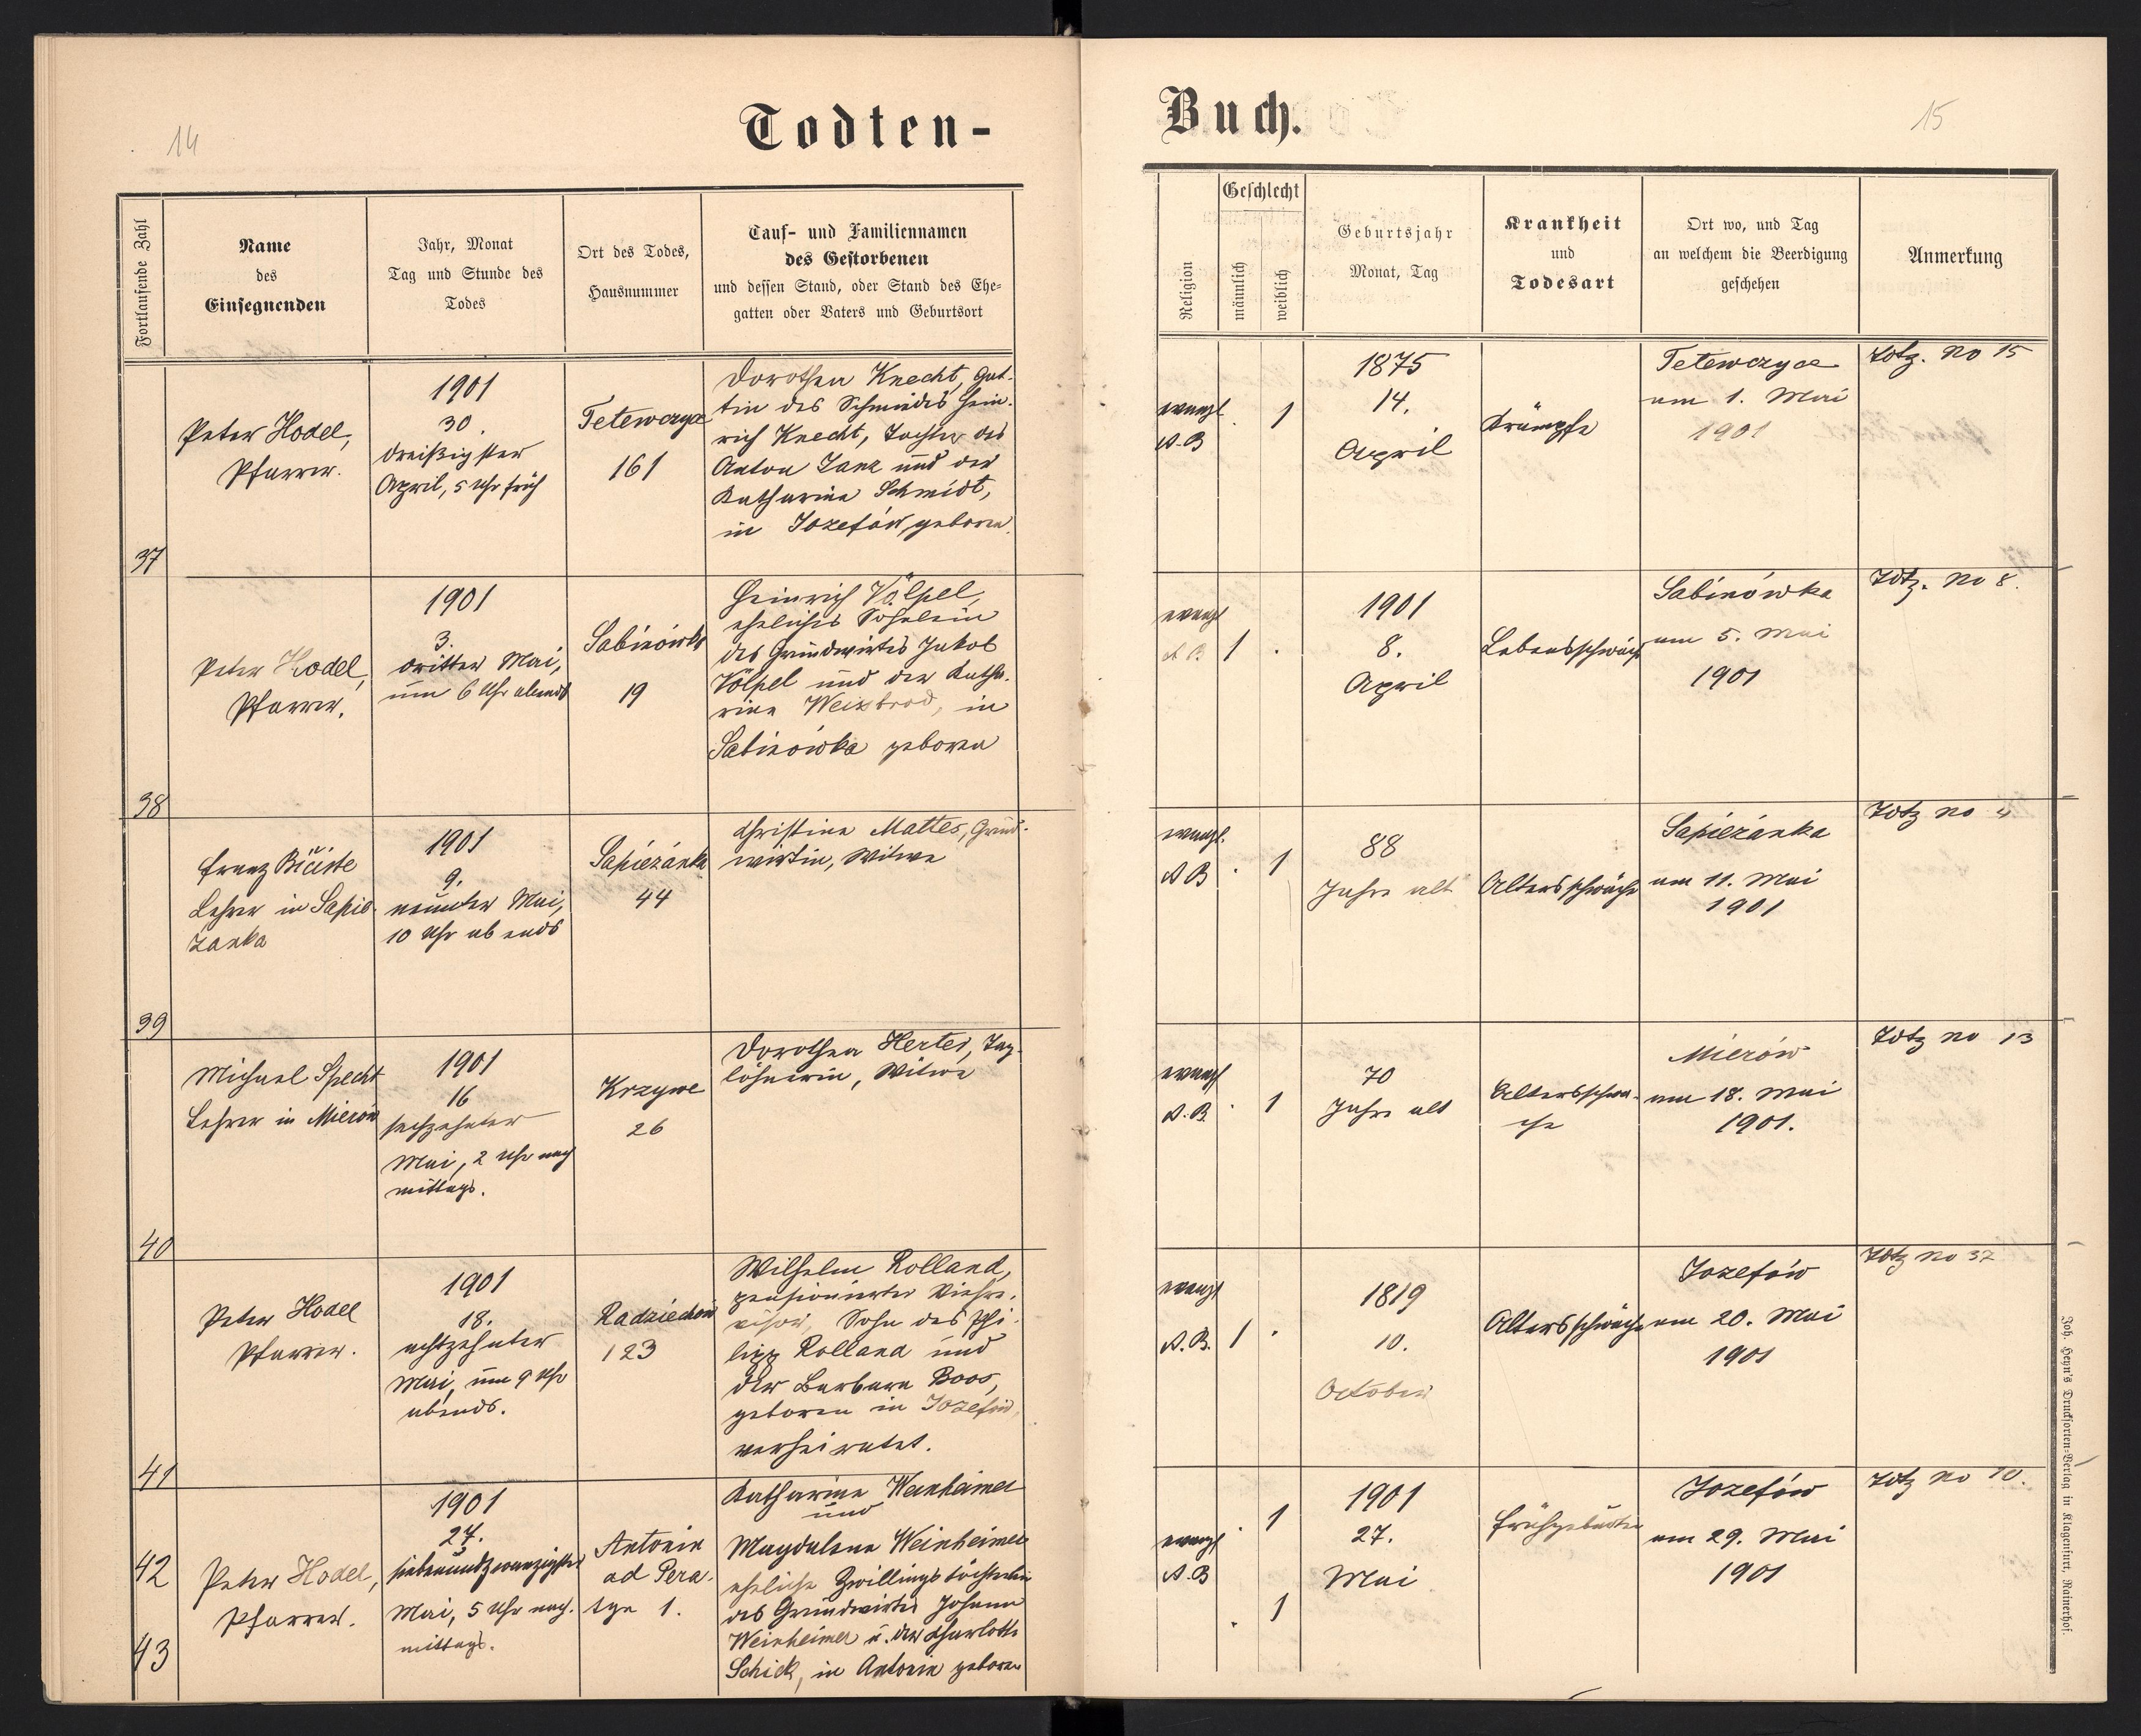 14
Todten-
Fortlaufende Zahl
Name
des
Einsegnenden
Jahr, Monat
Tag und Stunde des
Todes
Ort des Todes,
Hausnummer
Tauf- und Familiennamen
des Gestorbenen
und dessen Stand, oder Stand des Ehe-
gatten oder Vaters und Geburtsort
37
Peter Hodel,
Pfarrer.
1901
30.
dreißigster
April, 5 Uhr früh
Tetewczyce
161
Dorothea Knecht, Gat-
tin des Schmiedes Hein-
rich Knecht, Tochter des
Anton Janz und der
Katharina Schmidt,
in Jozefów geboren.
38
Peter Hodel,
Pfarrer.
1901
3.
dritter Mai,
um 6 Uhr abends
Sabinówka
19
Heinrich Völpel,
eheliches Söhnlein
des Grundwirtes Jakob
Völpel und der Katha-
rina Weisbrod, in
Sabinówka geboren
39
Franz
Lehrer in Sapie-
zanka
1901
9.
neunter Mai,
10 Uhr abends
Sapiezánka
44
Christina Mattes, Grund-
wirtin, Witwe
40
Michael Specht
Lehrer in Mierów
1901
16
sechzehnter
Mai, 2 Uhr nach
mittags.
Krzywe
26
Dorothea Herter, Tag-
löhnerin, Witwe
41
Peter Hodel
Pfarrer.
1901
18.
achtzehnter
Mai, um 9 Uhr
abends.
Radziechów
123
Wilhelm Rolland,
pensionierter Viehre-
visor, Sohn des Phi-
lipp Rolland und
der Barbara Boos,
geboren in Jozefów,
verheiratet.
42
43
Peter Hodel,
Pfarrer.
1901
27.
siebenundzwanzigster
Mai, 5 Uhr nach-
mittags.
Antonin
ad Pera-
tyn 1.
Katharina Weinheimer
und
Magdalena Weinheimer
eheliche Zwillingstöchterlein
des Grundwirtes Johann
Weinheimer u. der Charlotte
Schick, in Antonin geboren
Buch.
15
Religion
Geschlecht
männlich
weiblich
Geburtsjahr
Monat, Tag
Krankheit
und
Todesart
Ort wo, und Tag
an welchem die Beerdigung
geschehen
Anmerkung
evangl.
A.B
1
1875
14.
April
Krämpfe
Tetewczyce
am 1. Mai
1901
Totz. No 15
evangl
A B.
1
1901
8.
April
Lebensschwäche
Sabinówka
am 5. Mai
1901
Totz. No 8.
evangl.
A B
1
88
Jahre alt
Altersschwäche
Sapiezánka
am 11. Mai
1901
Totz No
evangl
A.B.
1
70
Jahre alt
Altersschwä-
che
Mierów
am 18. Mai
1901.
Totz No 13
evangl
A.B.
1
1819
10.
October
Altersschwäche
Jozefów
am 20. Mai
1901
Totz No 32
evangl
A.B
1
1
1901
27.
Mai
Frühgeburten
Jozefów
am 29. Mai
1901
Totz No 10.
Joh. Heyn's Drucksorten-Verlag in Klagenfurt, Rainerhof.